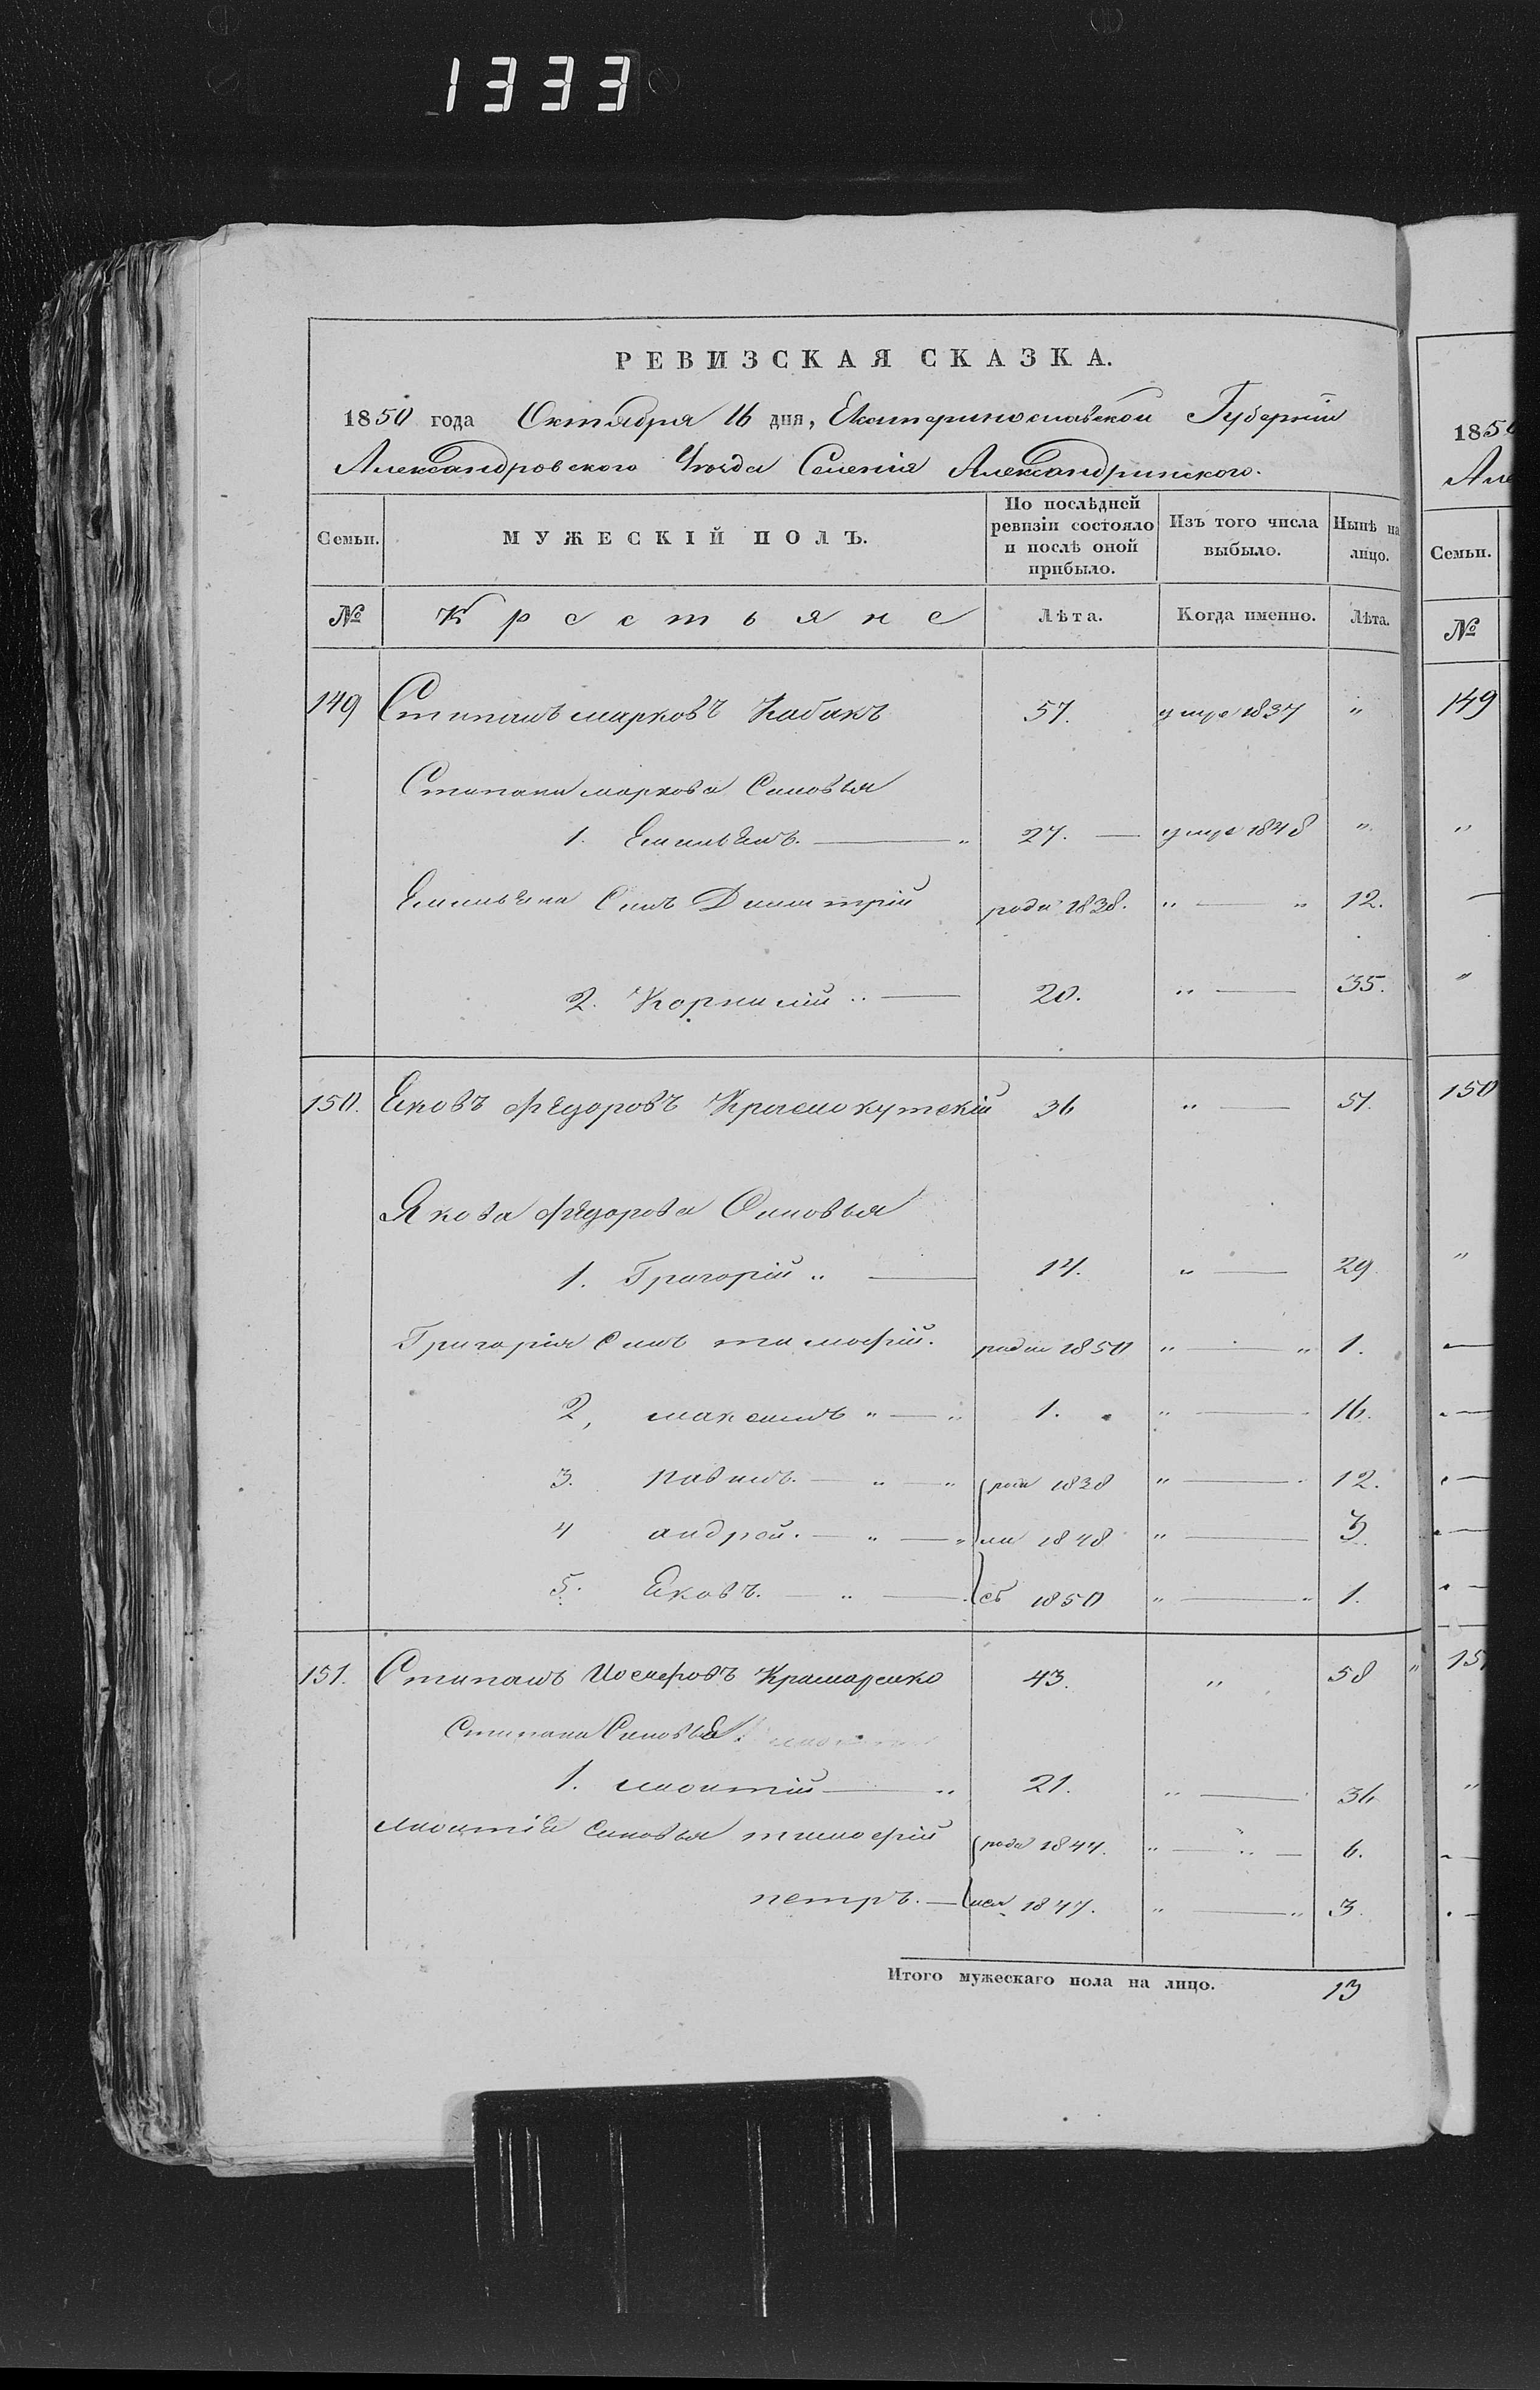 1333
РЕВИЗСКАЯ СКАЗКА.
1850 года Октября 16 дня, Екатеринославской Губерніи
Александровского Уезда Селенія Александринского.
Семьи. МУЖЕСКІЙ ПОЛЪ. По послѣдней ревизіи состояло и послѣ оной прибыло. Изъ того числа выбыло. Нынѣ на лицо.
№ Крестьяне Лѣта. Когда именно. Лѣта.
149 Стипанъ марковъ Кабакъ 57. умре 1837 "
Стипана маркова Синовья
1. Емильянъ. — " 27. — умре 1848 "
Емильяна Синъ Димитрій роди 1838. " — " 12.
2. Корнилій " — 20. " — 35.
150. Яковъ Федоровъ Краснокутскій 36 " — 51.
Якова Федорова Синовья
1. Григорій " — 14. " — 29
Григорія Синъ тимофій. роди 1850 " — " 1.
2, максимъ " — " 1. " — 16.
3. павилъ. — " — " роди 1838 " — 12.
4 андрей. — " — " ли 1848 " — 3.
5. Яковъ. — " — сь 1850 " — " 1.
151. Стипанъ Иосифовъ Крамаренко 43. " 58 "
Стипана Синовья:
1. леонтій — " 21. " — 36
леонтія Синовья тимофій роди 1844. " — " — 6.
петръ. — лся 1847. " — " 3.
Итого мужескаго пола на лицо. 13
1850
Але
Семьи.
№
149
150
151